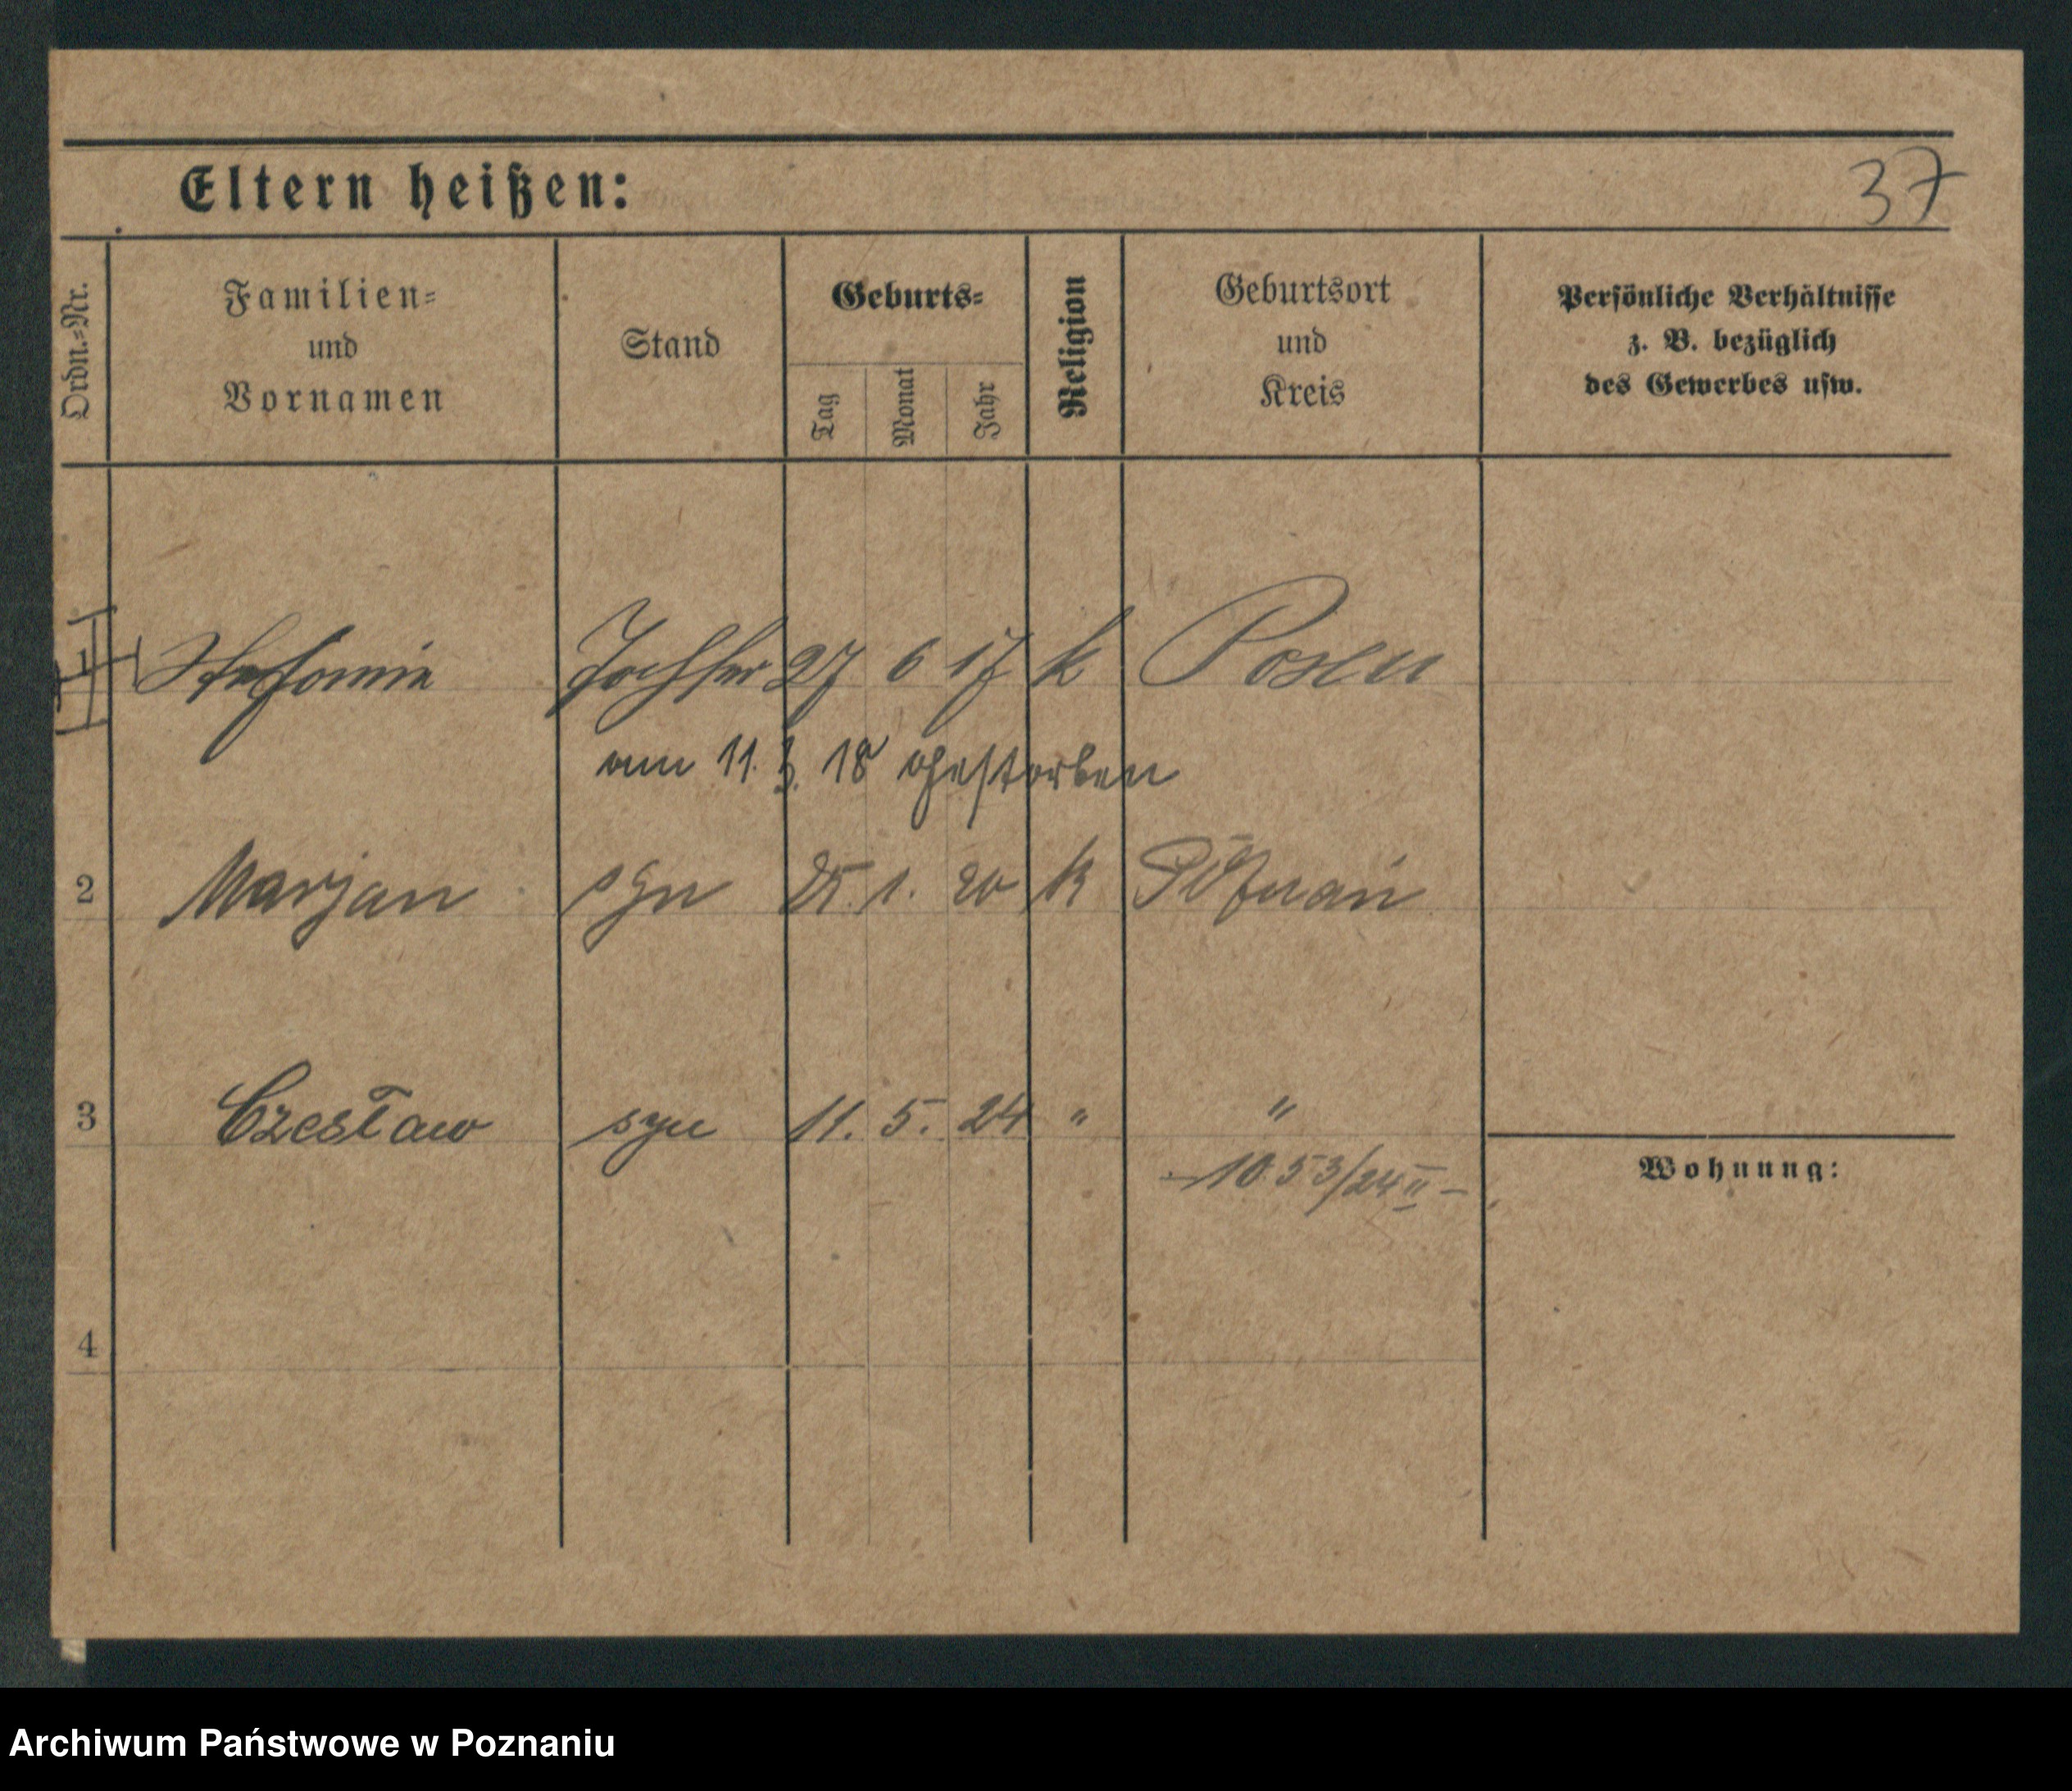 Eltern heißen:
37
Ordn.=Nr.
Familien=
und
Vornamen
Stand
Geburts=
Tag
Monat
Jahr
Religion
Geburtsort
und
Kreis
Persönliche Verhältnisse
z. B. bezüglich
des Gewerbes usw.
1 Stefanie Tochter 27 6 17 k Posen
am 11. 3. 18 gestorben
2 Marjan syn 25. 1. 20 k Poznań
3 Czesław syn 11. 5. 24 " "
- 1053/24 II -
Wohnung:
4
Archiwum Państwowe w Poznaniu